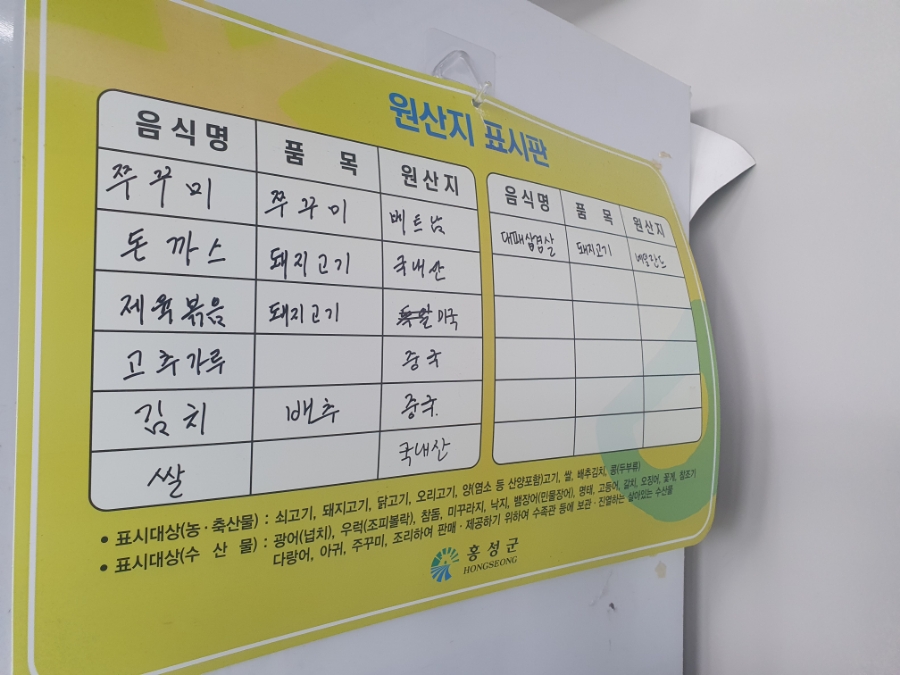 원산지 표시판
음식명 품목 원산지
쭈꾸미 쭈꾸미 베트남
돈까스 돼지고기 국내산
제육볶음 돼지고기 미국
고추가루 중국
김치 배추 중국.
쌀 국내산
음식명 품목 원산지
대패삼겹살 돼지고기 네덜란드
• 표시대상(농·축산물) : 쇠고기, 돼지고기, 닭고기, 오리고기, 양(염소 등 산양포함)고기, 쌀, 배추김치, 콩(두부류)
• 표시대상(수 산 물) : 광어(넙치), 우럭(조피볼락), 참돔, 미꾸라지, 낙지, 뱀장어(민물장어), 명태, 고등어, 갈치, 오징어, 꽃게, 참조기
다랑어, 아귀, 주꾸미, 조리하여 판매·제공하기 위하여 수족관 등에 보관·진열하는 살아있는 수산물
홍성군
HONGSEONG